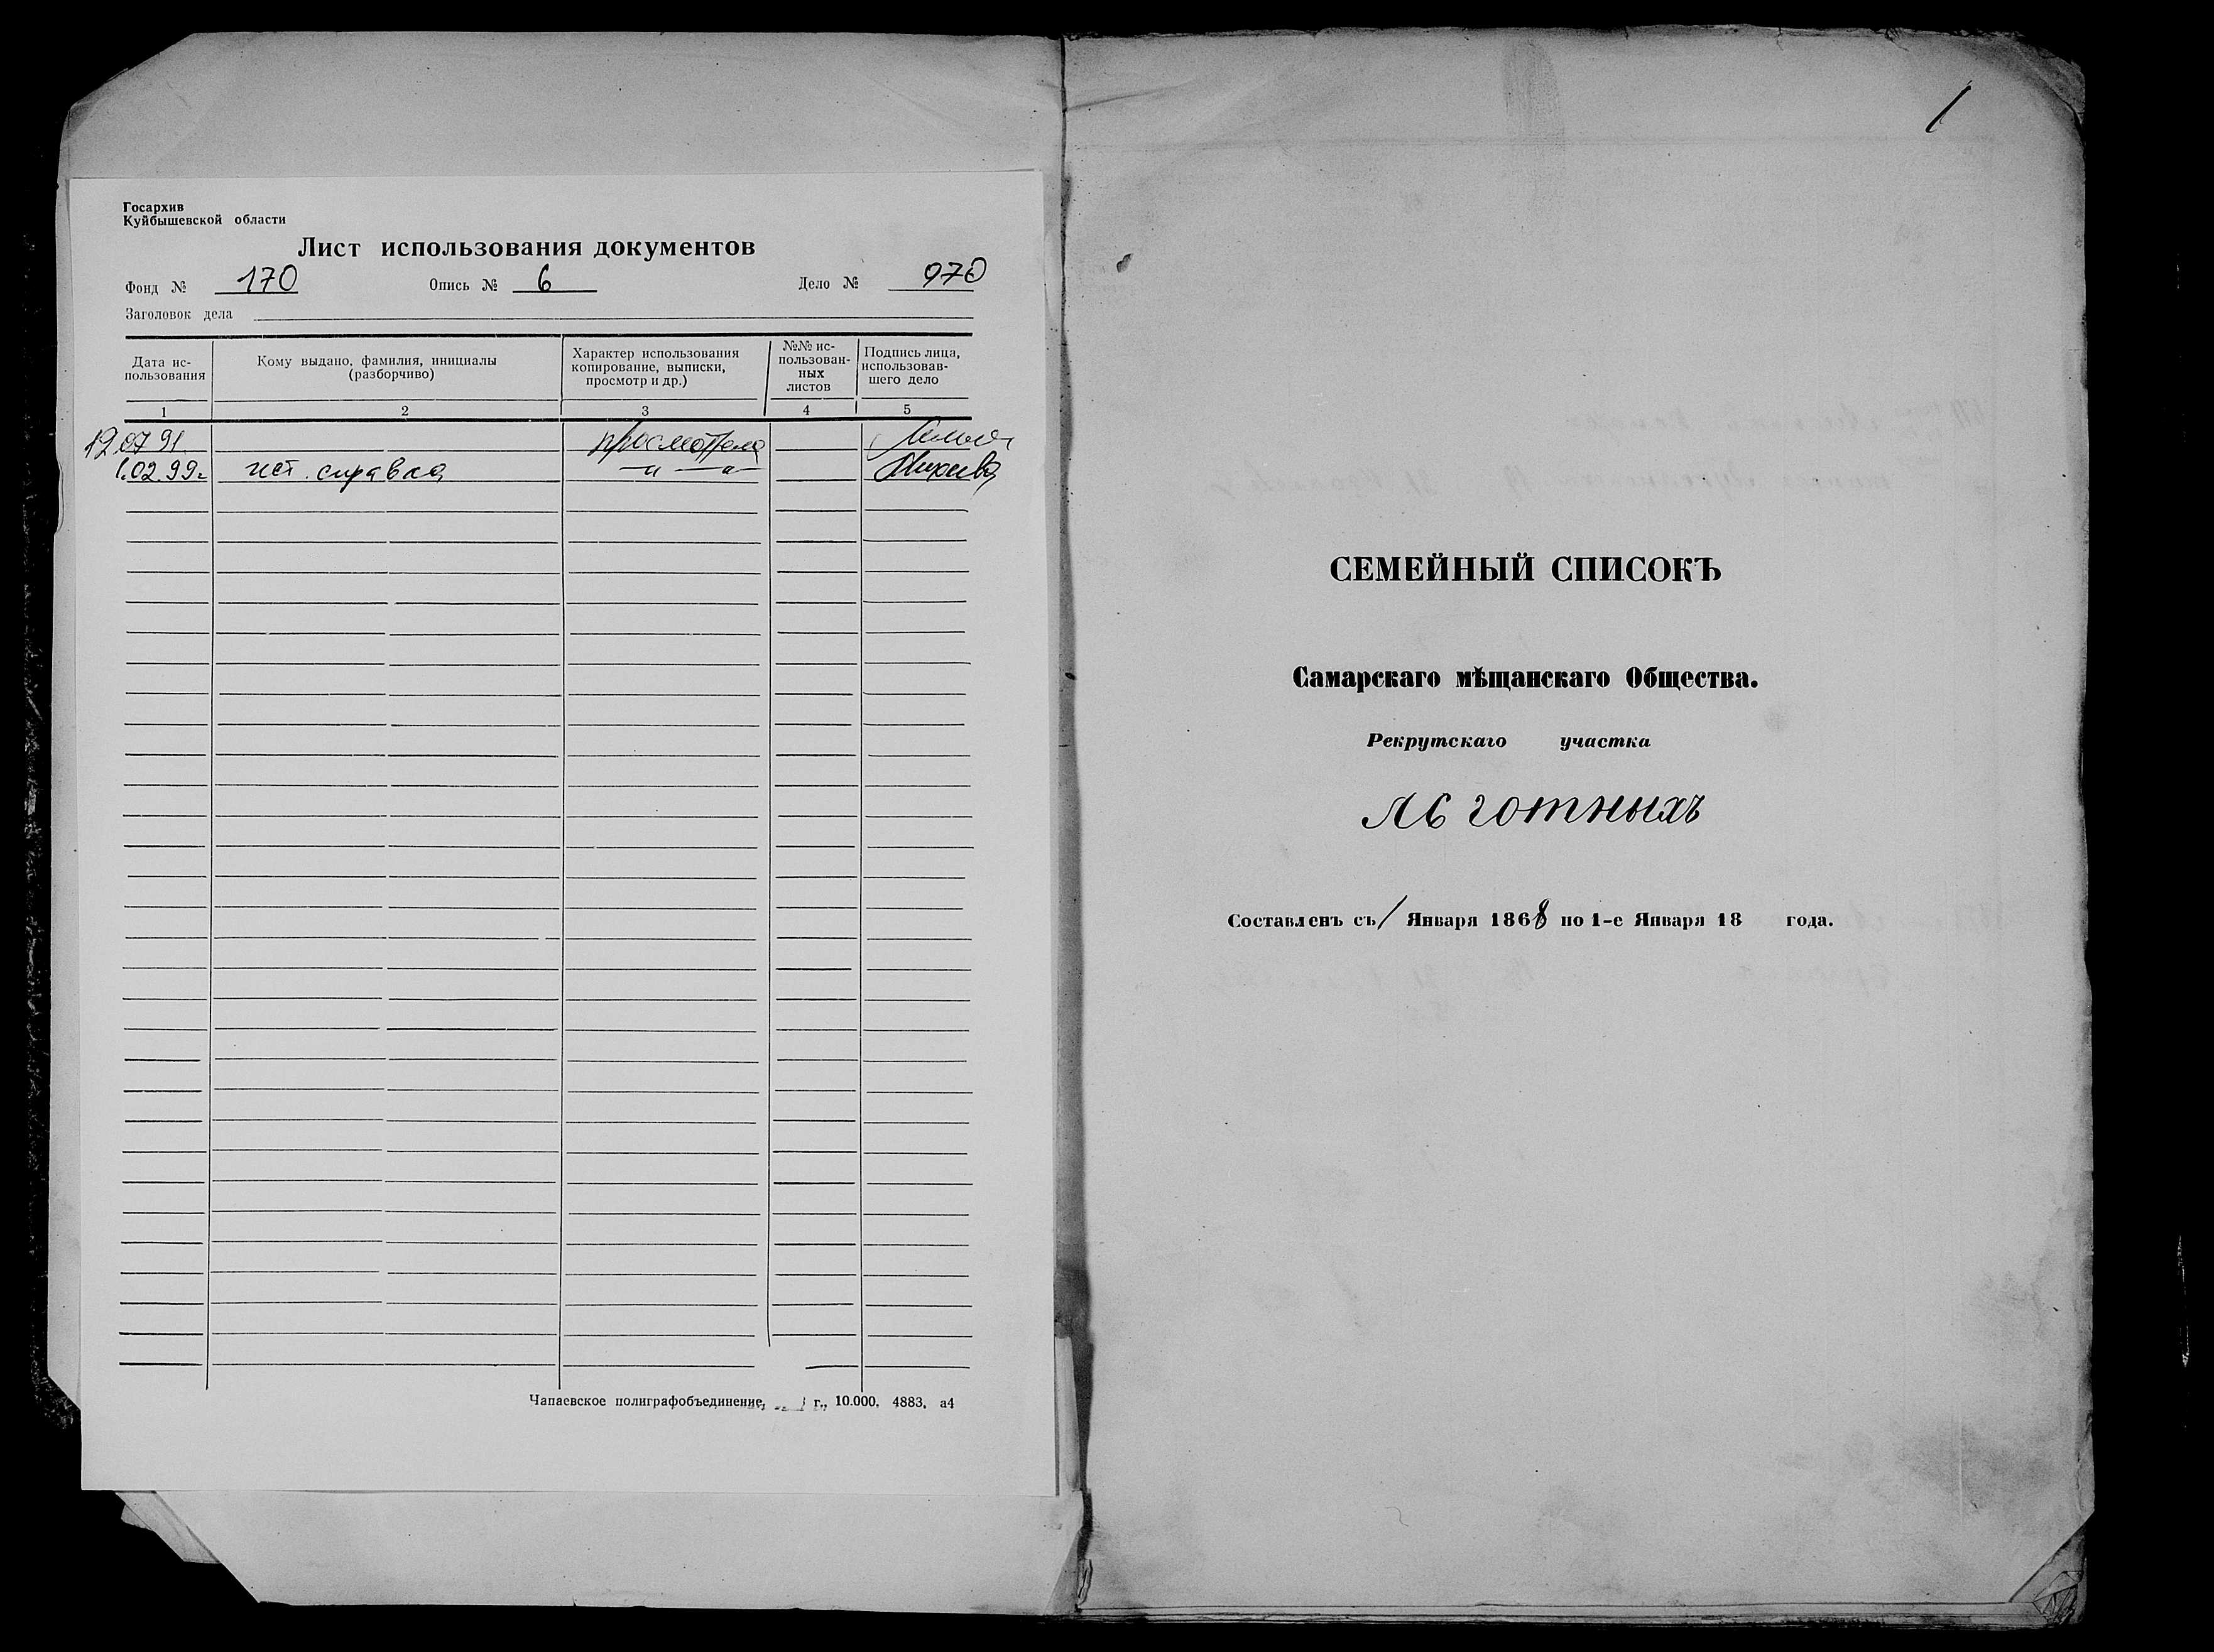 Госархив
Куйбышевской области
Лист использования документов
Фонд № 170 Опись № 6 Дело № 970
Заголовок дела
Дата ис-
пользования
Кому выдано, фамилия, инициалы
(разборчиво)
Характер использования
копирование, выписки,
просмотр и др.)
№№ ис-
пользован-
ных
листов
Подпись лица,
использовав-
шего дело
1 2 3 4 5
12.07 91. просмотрела
1.02.99г ист. справка —"—"—
Чапаевское полиграфобъединение, г., 10.000. 4883. а4
1
СЕМЕЙНЫЙ СПИСОКЪ
Самарскаго мѣщанскаго Общества.
Рекрутскаго участка
Льготныхъ
Составленъ съ 1 Января 1868 по 1-е Января 18 года.